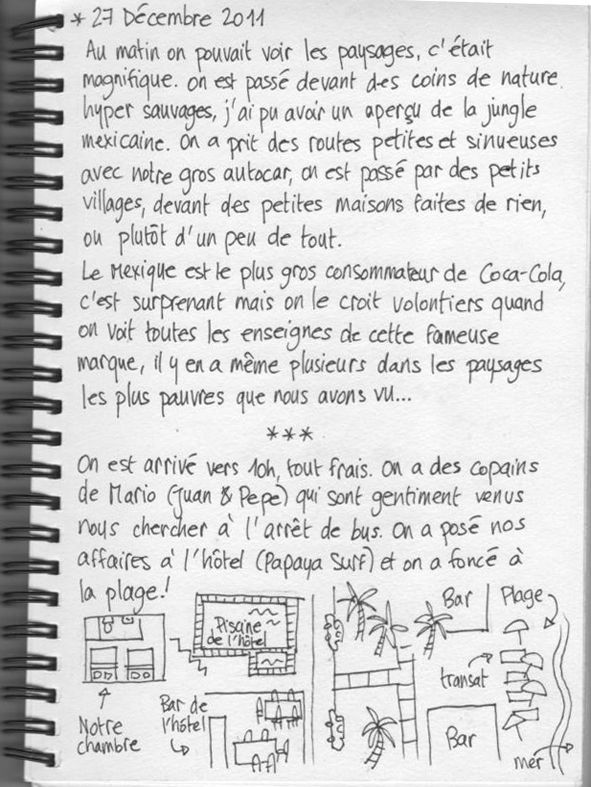 * 27 Décembre 2011
Au matin on pouvait voir les paysages, c'était
magnifique. on est passé devant des coins de nature
hyper sauvages, j'ai pu avoir un aperçu de la jungle
mexicaine. On a prit des routes petites et sinueuses
avec notre gros autocar, on est passé par des petits
villages, devant des petites maisons faites de rien,
ou plutôt d'un peu de tout.
Le Mexique est le plus gros consommateur de Coca-Cola,
c'est surprenant mais on le croit volontiers quand
on voit toutes les enseignes de cette fameuse
marque, il y en a même plusieurs dans les paysages
les plus pauvres que nous avons vu...
***
On est arrivé vers 10h, tout frais. On a des copains
de Mario (Juan & Pepe) qui sont gentiment venus
nous chercher à l'arrêt de bus. On a posé nos
affaires à l'hôtel (Papaya Surf) et on a foncé à
la plage!
Piscine
de l'hôtel
Notre
chambre
Bar de
l'hôtel
Bar
Plage
transat
Bar
mer